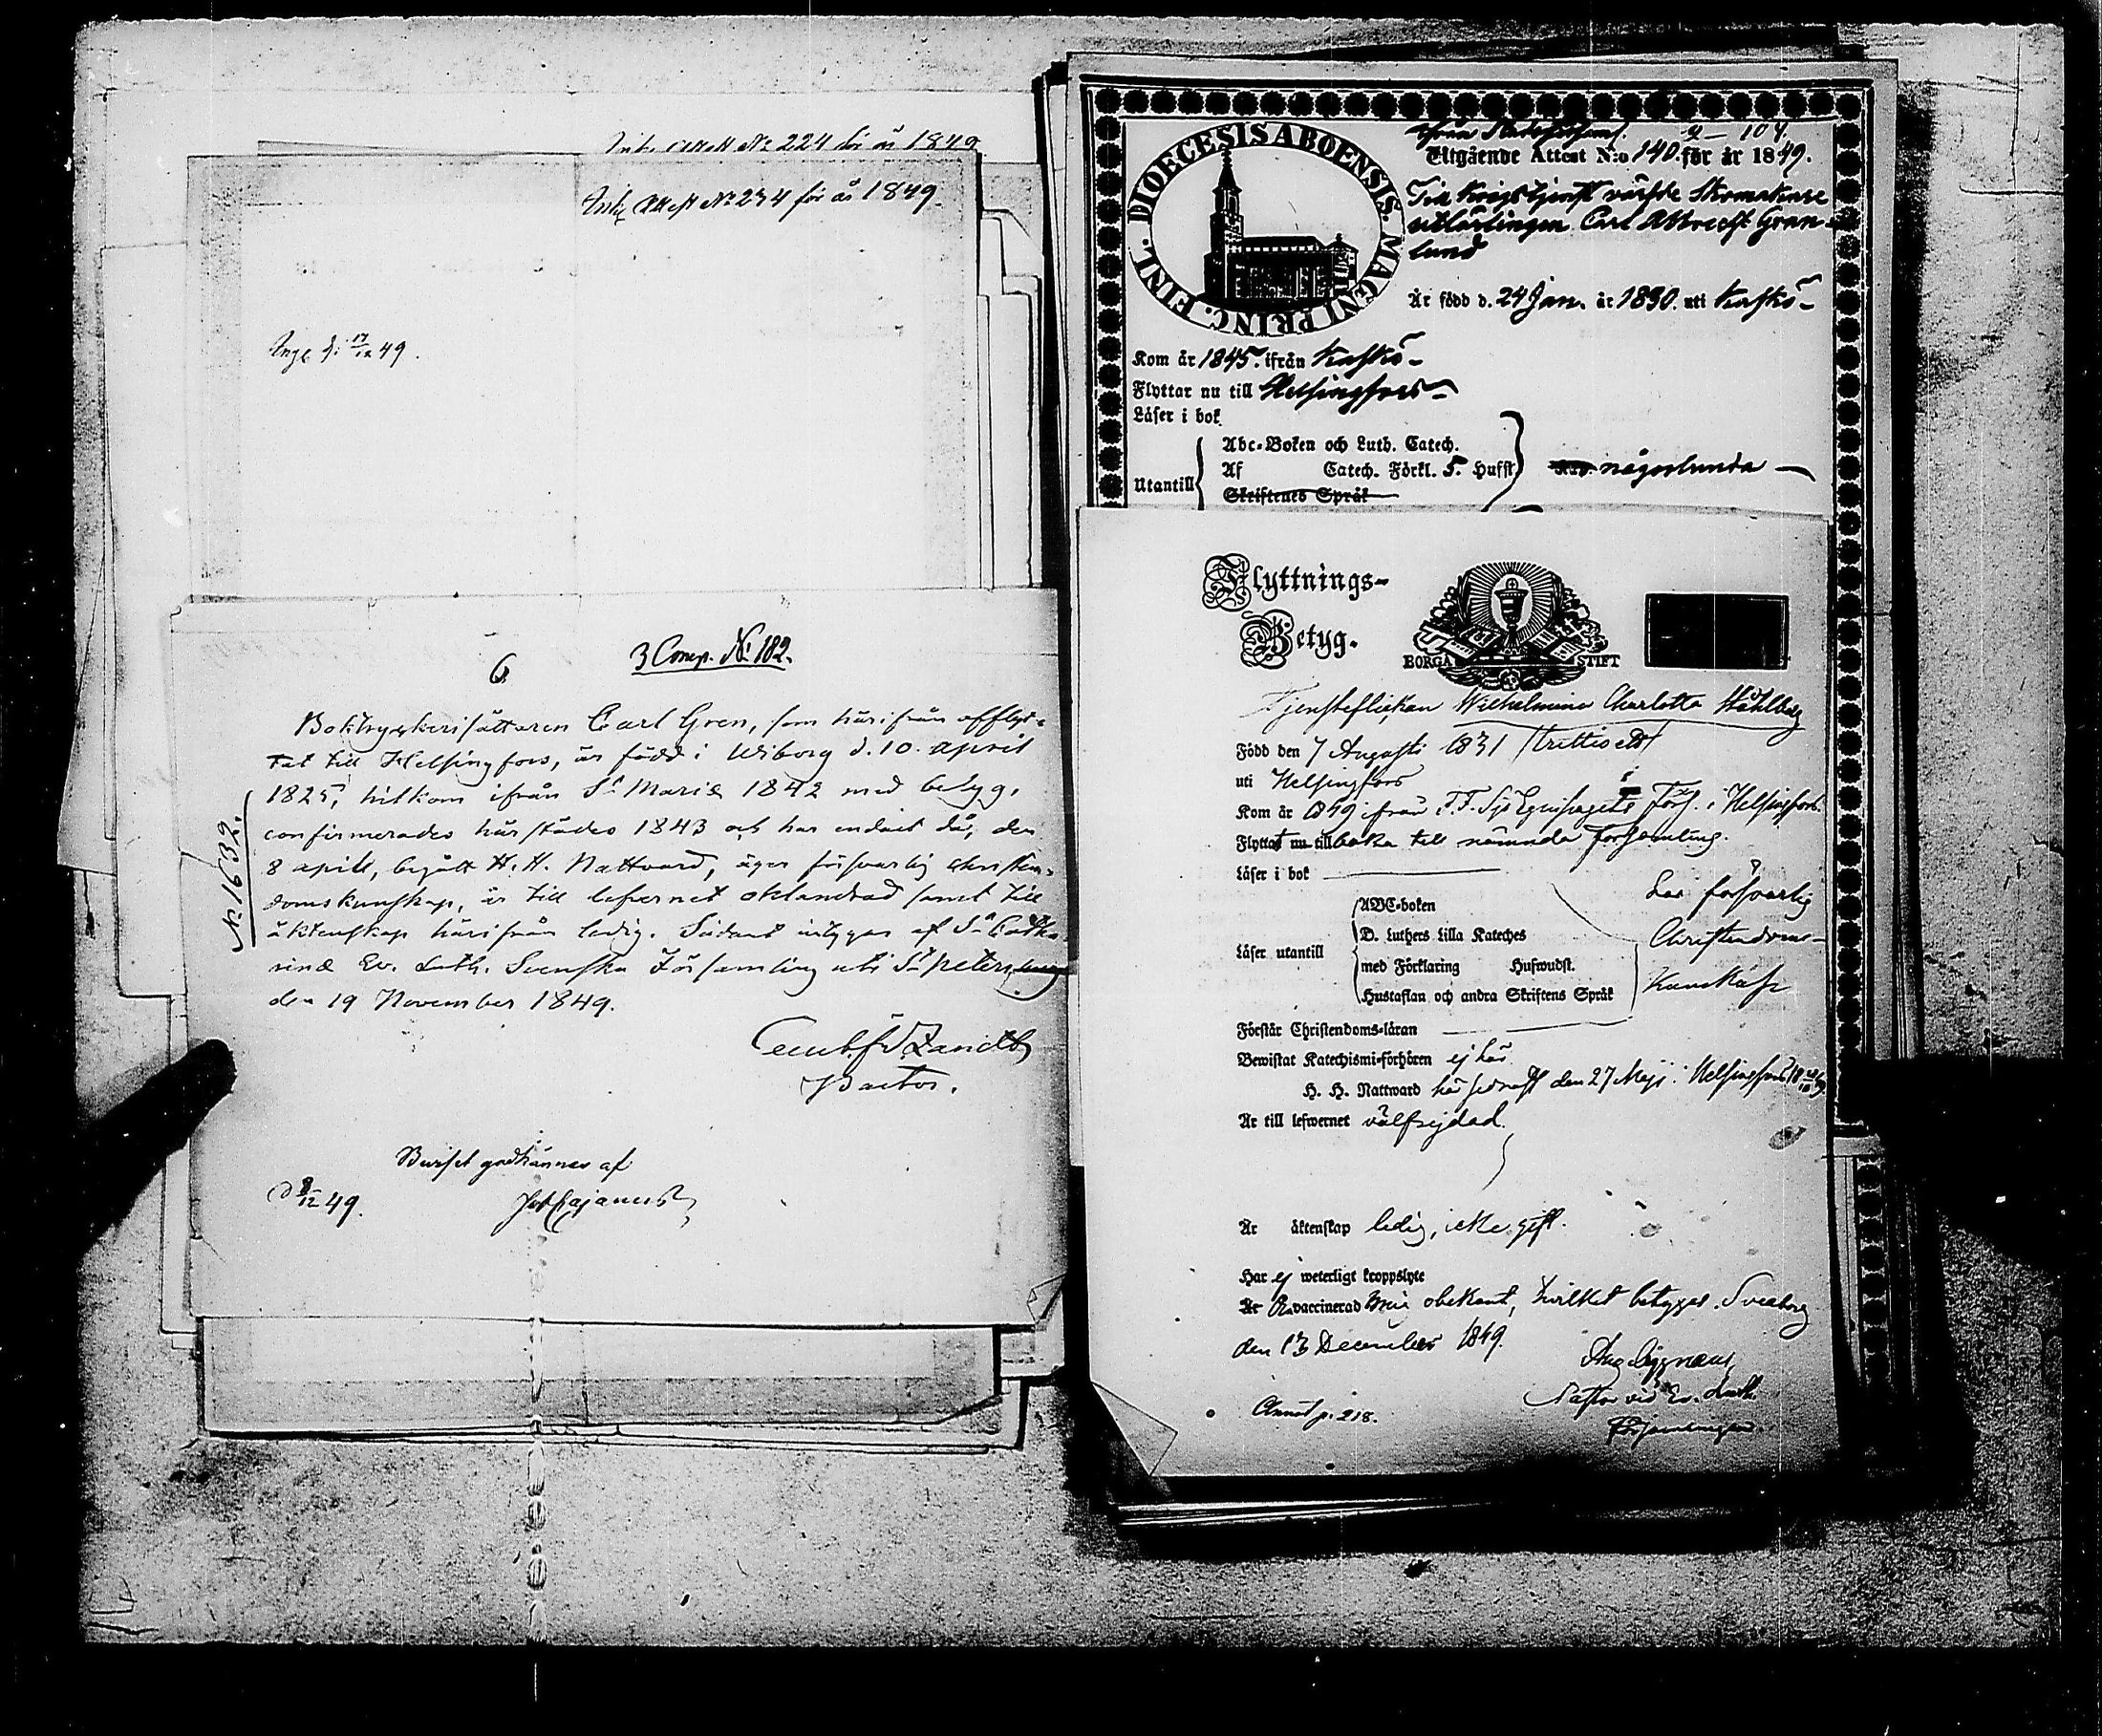 Attest No 224 för år 1849
Attest No 234 för år 1849.
49.
3 Comp. No 182.
6
Boktryckerisättaren Carl Gren, som härifrån afflyt-
tat till Helsingfors, är född i Wiborg d. 10. april
1825, hitkom ifrån S:t Mariæ 1842 med betyg,
confirmerades härstädes 1843 och har endast då, den
8 april, begått H. H. Nattvard, äger försvarlig christen-
domskunskap, är till lefvernet oklandrad samt till
äktenskap härifrån ledig. Sådant intygas af S:t Catha-
rinæ Ev. Luth. Svenska Församling uti S:t Petersburg
den 19 November 1849.
No 1632.
Pastor.
Beviset godkännes af
d 8/12 49.
Joh Cajanus
DIOECESIS ABOENSIS. MAGNI PRINC. FINL.
från Stadsförsaml. 104.
Utgående Attest N:o 140. för år 1849.
Carl Albrecht Gran-
lund
Är född d. 24 Jan. år 1830. uti Kaskö
Kom år 1845. ifrån Kaskö
Flyttar nu till Helsingfors
Läser i bok
Utantill
Abc-Boken och Luth. Catech.
Af Catech. Förkl. 5. Hufst
Skriftenes Språk
någorlunda
Flyttnings-
Betyg.
BORGÅ STIFT
Tjensteflickan Wilhelmina Charlotta Ståhlberg
Född den 7 Augusti 1831 /trettioett/
uti Helsingfors
Kom år 1849 ifrån Förs. i Helsingfors.
Flyttat nu tillbaka till nämnda Församling.
Läser i bok
Läser utantill
ABC-boken
D. Luthers Lilla Kateches
med Förklaring Hufwudst.
Hustaflan och andra Skriftens Språk
har försvarlig
Christendoms-
Kunskap
Förstår Christendoms-läran
Bewistat Katechismi-förhören ej här
H. H. Nattward här sednast den 27 Maji i Helsingfors
Är till lefwernet välfrejdad.
Är äktenskap ledig, icke gift.
Har ej weterligt kroppslyte
Är vaccinerad mig obekant, hvilket betygas. Sveaborg
den 13 December 1849.
Aug Cygnæus,
Pastor vid Ev. Luth.
Församlingen.
p. 218.